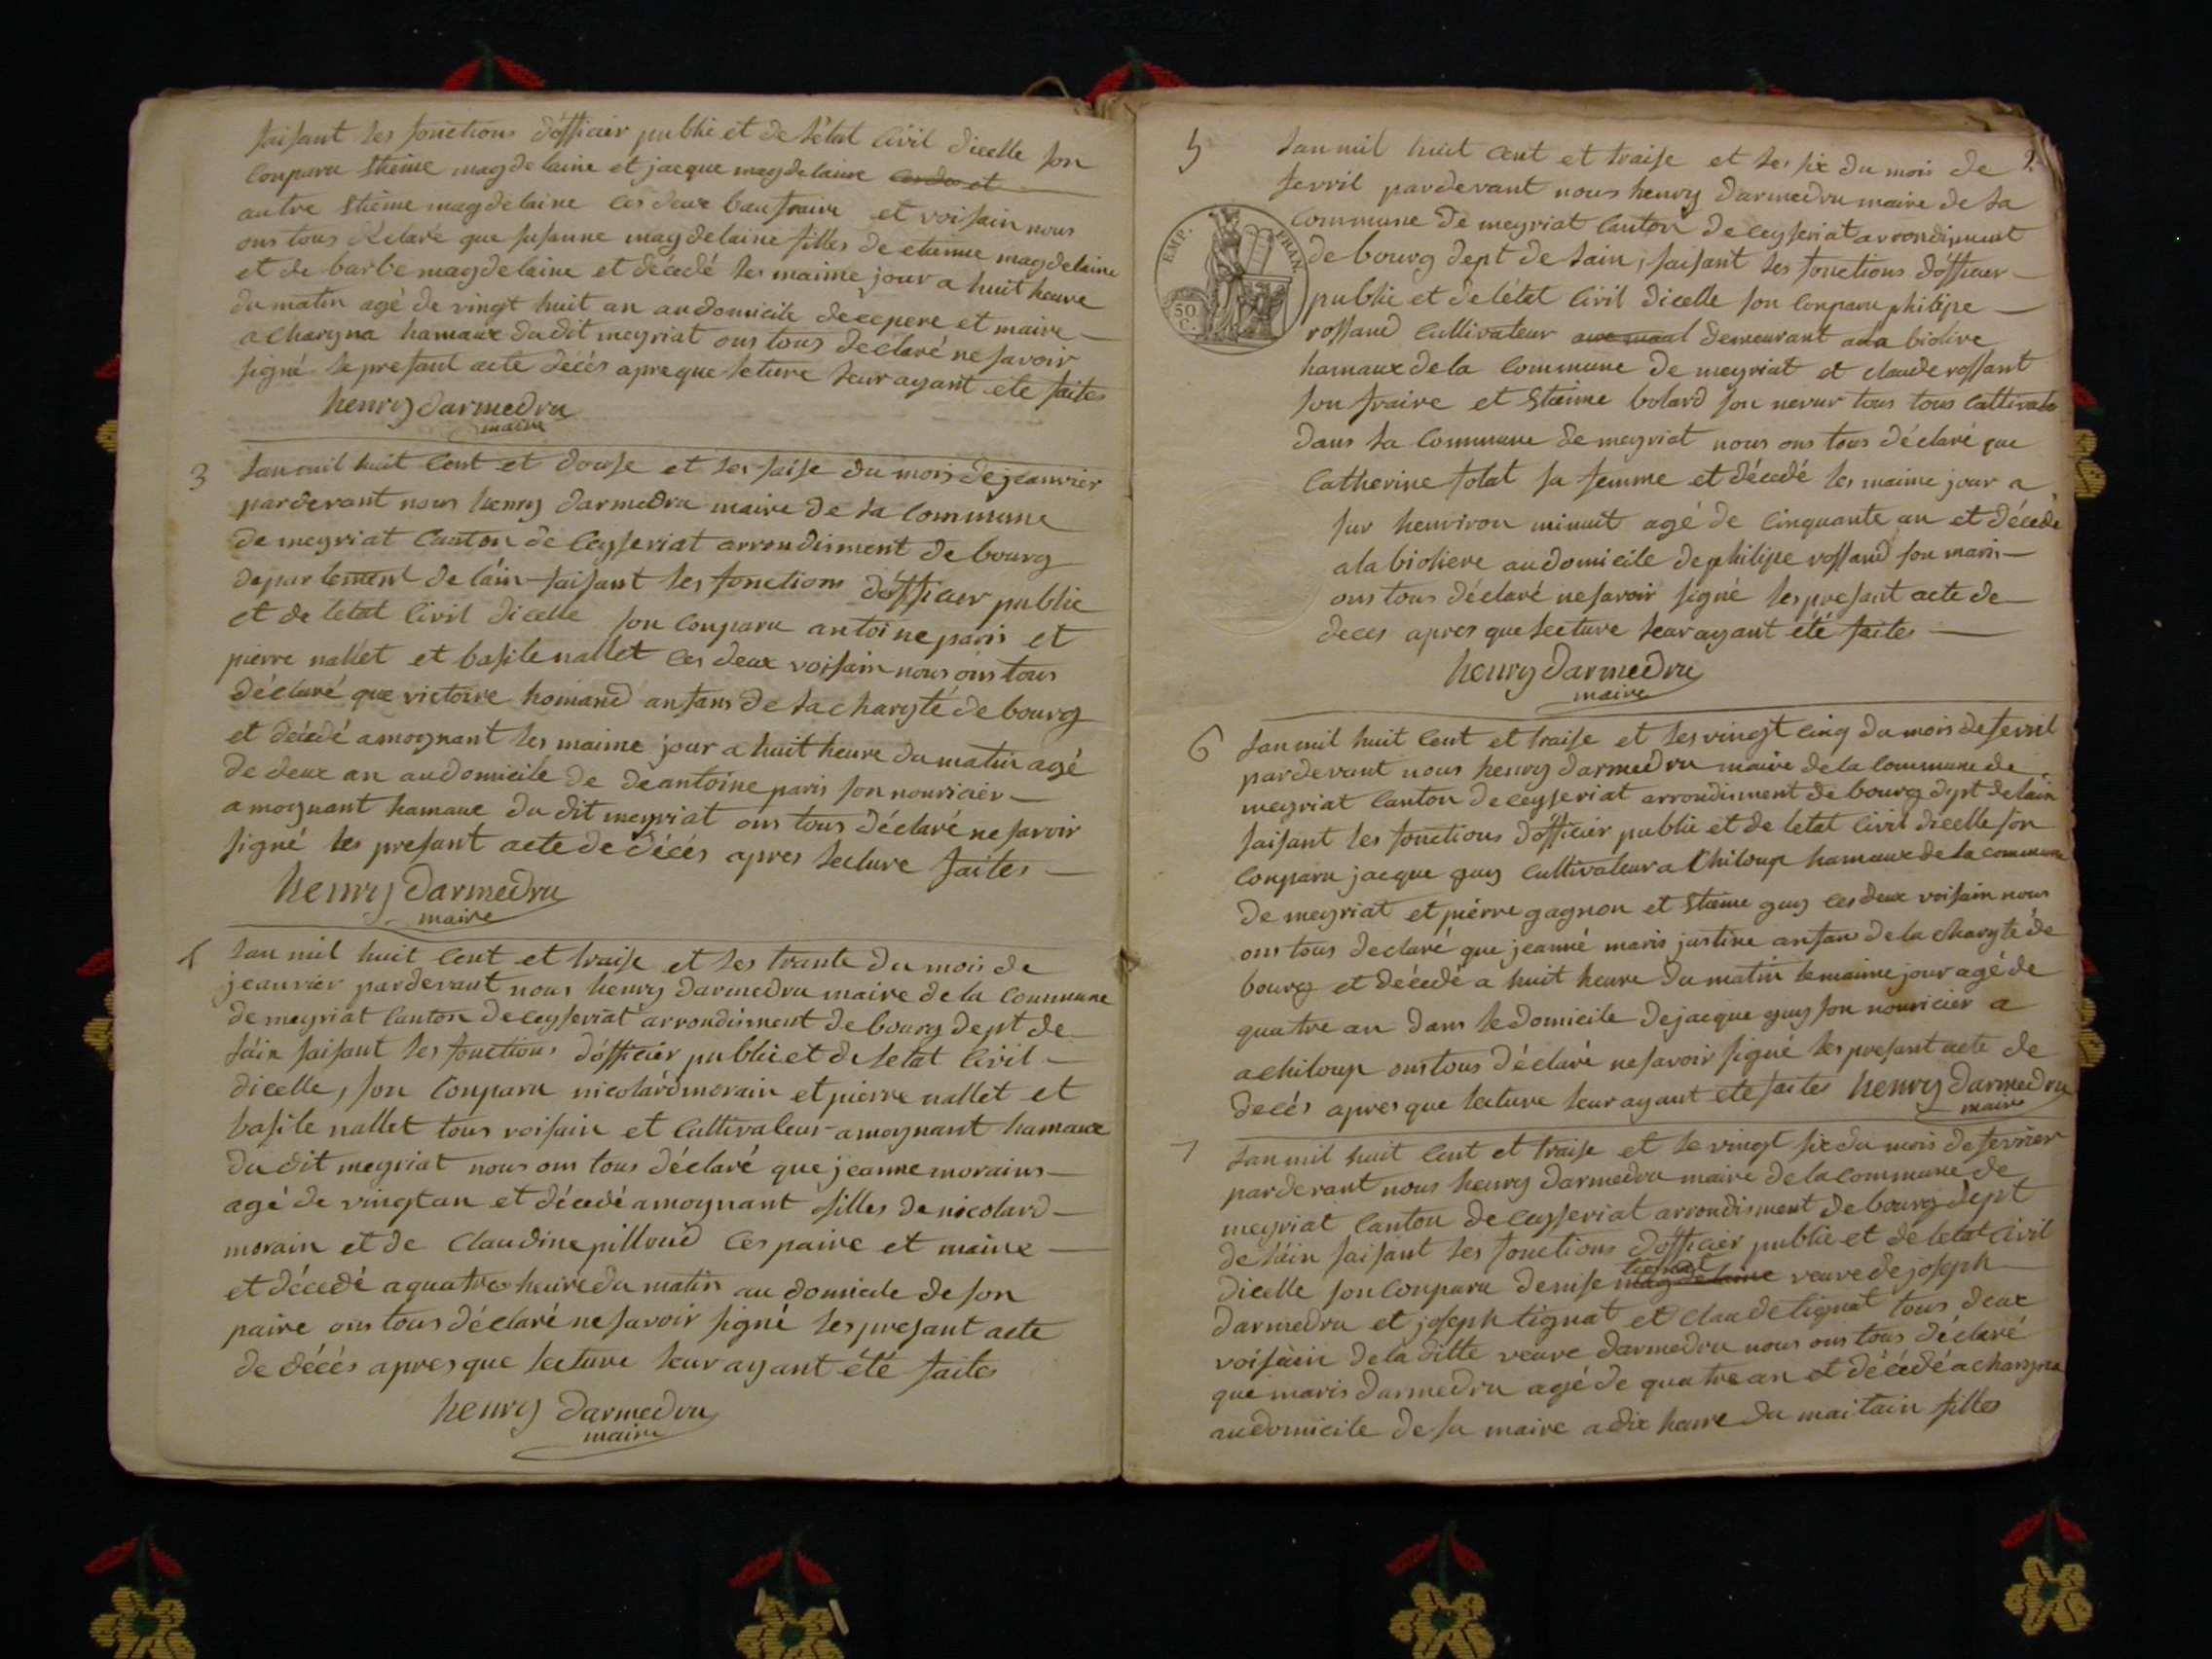 faisant les fonctions d'officier public et de l'état Civil dicelle son
Conparu Stieine magdelaine et jacque magdelaine
autre Stieine magdelaine les deux baufraire et voisain nous
ons tous déclaré que susanne magdelaine filles de etienne magdelaine
et de barbe magdelaine et décédé les maime jour a huit heure
du matin agé de vingt huit an audomicile de ce pere et maire
a charyna hamaux du dit meyriat ons tous declaré ne savoir
signé le presant acte décés apreque leture leur ayant ete faites
henry darmedru
maire
3
Lan mil huit Cent et douse et les saise du mois de jeanvier
pardevant nous henry darmedru maire de la Commune
de meyriat Canton de Ceyseriat arrondisment de bourg
departement de láin faisant les fonctions d'officier public
et de letat Civil dicelle son Conparu antoine paris et
pierre nallet et basile nallet les deux voisain nous ons tous
déclaré que victoire homand anfans de la charyté de bourg
et décédé a moynant les maime jour a huit heure du matin agé
de deux an au domicile de de antoine paris son nouricier
a moynant hamaux du dit meyriat ons tous déclaré ne savoir
signé les presant acte de décés apres lecture faites
henry darmedru
maire
Lan mil huit Cent et traise et les trante du mois de
jeanvier pardevant nous henry darmedru maire de la Commune
de meyriat Canton de Ceyseriat arrondisment de bourg dept de
láin faisant les fonctions d'officier public et de letat Civil
dicelle, son Conparu nicolard morain et pierre nallet et
basile nallet tous voisain et Cultivateur a moynant hamaux
du dit meyriat nous ons tous déclaré que jeanne morains
agé de vingt an et décédé a moynant filles de nicolard
morain et de Claudine pilloud les paire et maire
et décedé a quatre heure du matin au domicile de son
paire ons tous déclaré ne savoir signé les presant acte
de décés apres que lecture leur ayant été faites
henry darmedru
maire
5
Lan mil huit Cent et traise et les six du mois de
fevril pardevant nous henry darmedru maire de la
Commune de meyriat Canton de Ceyseriat arrondisment
de bourg dept de lain, faisant les fonctions d'officier
public et de létat Civil dicelle son Conparu philipe
rossand Cultivateur demeurant a la biolire
hamaux de la Commune de meyriat et claude rossant
son fraire et Stieine bolard son nevur tous tous Cultivate
dans la Commune de meyriat nous ons tous déclaré que
Catherine folat sa femme et décedé les maime jour a
sur henviron minuit agé de Cinquante an et décedé
a la bioliere au domicile de philipe rossand son maris
ons tous déclaré ne savoir signé les presant acte de
deces apres que lecture leur ayant été faites
henry darmedru
maire
EMP. FRAN.
50
C.
6
Lan mil huit Cent et traise et les vingt cinq du mois de fevril
pardevant nous henry darmedru maire de la Commune de
meyriat Canton de Ceyseriat arrondisment de bourg dept de lain
faisant les fonctions d'officier public et de letat Civil dicelle son
Conparu jacque guy Cultivateur a Chiloup hamaux de la commune
de meyriat et piérre gagnon et Stieine guy les deux voisain nous
ons tous declaré que jeanné maris justine anfan de la charyté de
bourg et décedé a huit heure du matin le maime jour agé de
quatre an dans le domicile de jacque guy son nouricier a
a chiloup ons tous déclaré ne savoir signé les presant acte de
decés apres que lecture leur ayant ete faites henry darmedru
maire
7
Lan mil huit Cent et traise et le vingt six du mois de fevrier
pardevant nous henry darmedru maire de la commune de
meyriat Canton de Ceyseriat arrondisment de bourg dept
de láin faisant les fonctions d'officier public et de letat Civil
tignat
dicelle son Conparu denise magdelaine veuve de joseph
darmedru et joseph tignat et claude tignat tous deux
voisain de la ditte veuve darmedru nous ons tous déclaré
que maris darmedru agé de quatre an et décédé a charyna
au domicile de sa maire a dix heure du maitain filles